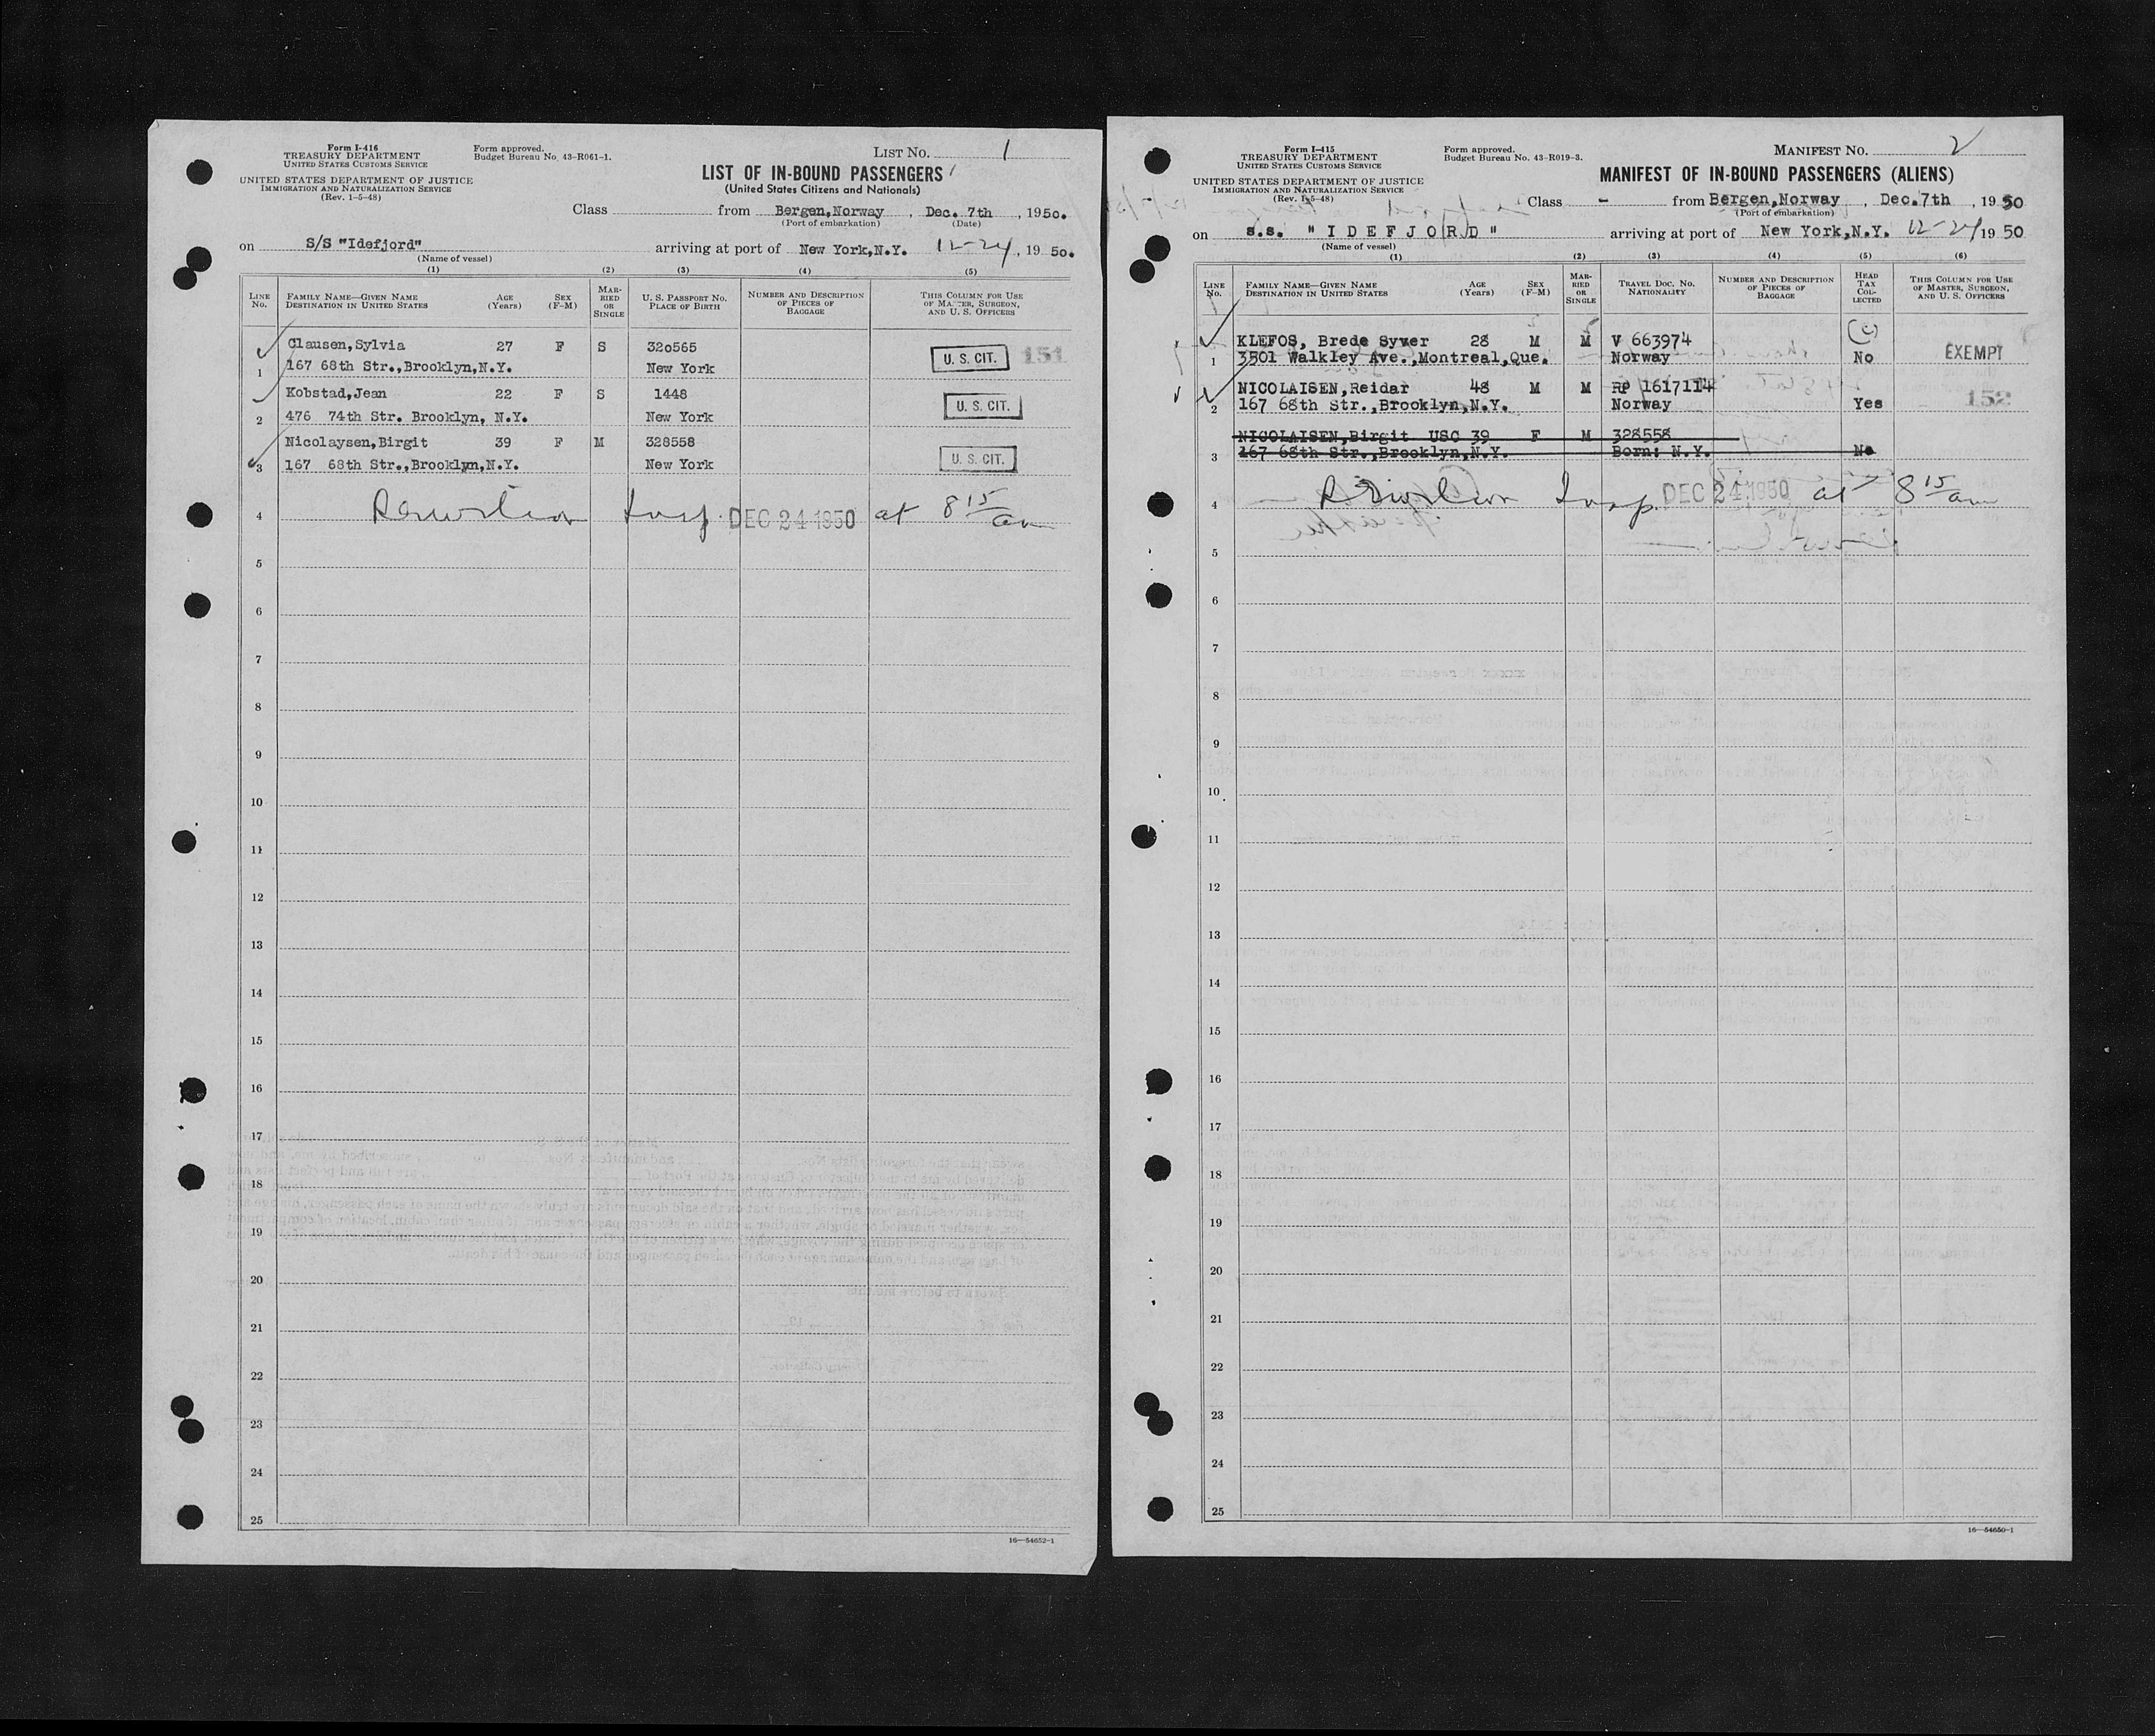 Form I-416
TREASURY DEPARTMENT
UNITED STATES CUSTOMS SERVICE
UNITED STATES DEPARTMENT OF JUSTICE
IMMIGRATION AND NATURALIZATION SERVICE
(Rev. 1-5-48)
Form approved.
Budget Bureau No. 43-R061-1.
LIST NO. 1
LIST OF IN-BOUND PASSENGERS
(United States Citizens and Nationals)
Class from Bergen,Norway , Dec. 7th , 1950.
(Port of embarkation) (Date)
on S/S "Idefjord" arriving at port of New York,N.Y. 12-24, 1950.
(Name of vessel)
(1) (2) (3) (4) (5)
LINE NO. FAMILY NAME—GIVEN NAME DESTINATION IN UNITED STATES AGE (Years) SEX (F-M) MARRIED OR SINGLE U. S. PASSPORT NO. PLACE OF BIRTH NUMBER AND DESCRIPTION OF PIECES OF BAGGAGE THIS COLUMN FOR USE OF MASTER, SURGEON, AND U. S. OFFICERS
Clausen,Sylvia 27 F S 320565 U. S. CIT. 151
1 167 68th Str.,Brooklyn,N.Y. New York
Kobstad,Jean 22 F S 1448 U. S. CIT.
2 476 74th Str. Brooklyn, N.Y. New York
Nicolaysen,Birgit 39 F M 328558 U. S. CIT.
3 167 68th Str.,Brooklyn,N.Y. New York
4 Insp. DEC 24 1950 at 8 15/am
5
6
7
8
9
10
11
12
13
14
15
16
17
18
19
20
21
22
23
24
25
16—54652-1
Form I-415
TREASURY DEPARTMENT
UNITED STATES CUSTOMS SERVICE
UNITED STATES DEPARTMENT OF JUSTICE
IMMIGRATION AND NATURALIZATION SERVICE
(Rev. 1-5-48)
Form approved.
Budget Bureau No. 43-R019-3.
MANIFEST NO. 2
MANIFEST OF IN-BOUND PASSENGERS (ALIENS)
Class - from Bergen,Norway , Dec.7th , 1950
(Port of embarkation)
on s.s. "I D E F J O R D" arriving at port of New York,N.Y. 12-24 1950
(Name of vessel)
(1) (2) (3) (4) (5) (6)
LINE NO. FAMILY NAME—GIVEN NAME DESTINATION IN UNITED STATES AGE (Years) SEX (F-M) MARRIED OR SINGLE TRAVEL DOC. NO. NATIONALITY NUMBER AND DESCRIPTION OF PIECES OF BAGGAGE HEAD TAX COLLECTED THIS COLUMN FOR USE OF MASTER, SURGEON, AND U. S. OFFICERS
KLEFOS, Brede Syver 28 M M V 663974 (c)
1 3501 Walkley Ave.,Montreal,Que. Norway No EXEMPT
NICOLAISEN,Reidar 48 M M RP 1617114
2 167 68th Str.,Brooklyn,N.Y. Norway Yes 152
NICOLAISEN,Birgit USC 39 F M 328558
3 167 68th Str.,Brooklyn,N.Y. Born: N.Y. No
4 Insp. DEC 24 1950 at 8 15/am
5
6
7
8
9
10
11
12
13
14
15
16
17
18
19
20
21
22
23
24
25
16—54650-1